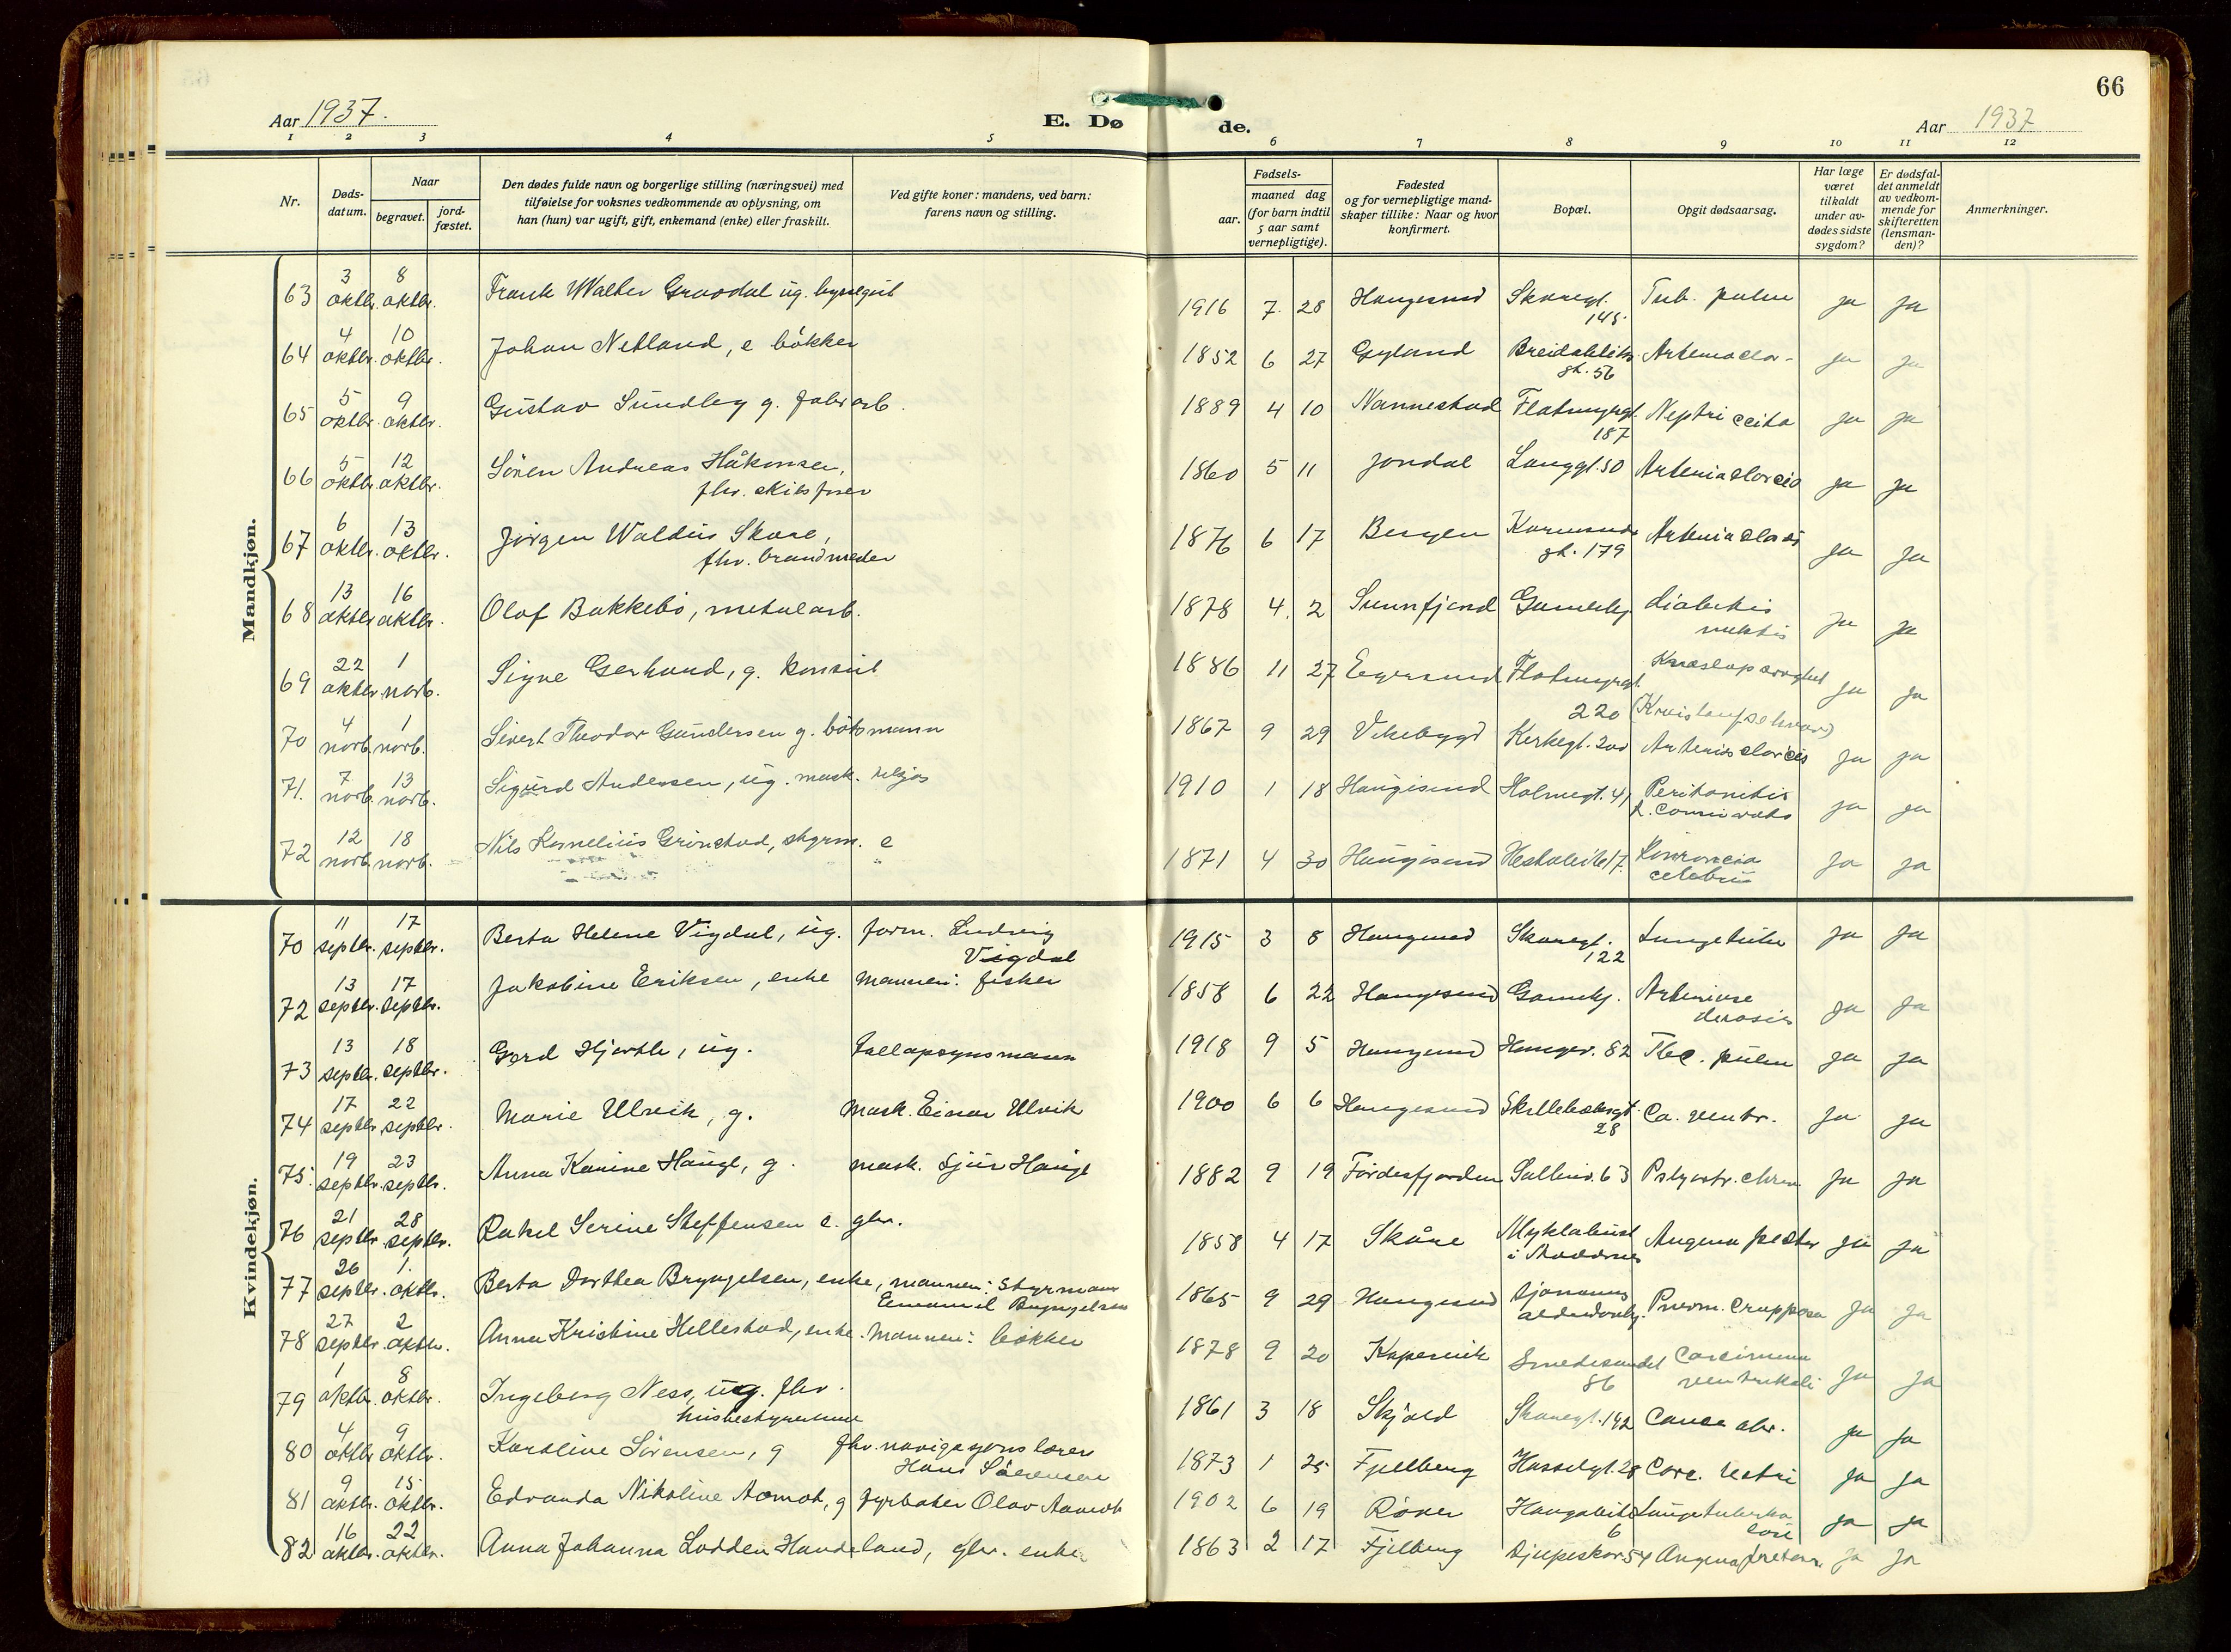 66
Aar 1937.
E. Dø de.
Aar 1937
1 2 3 4 5 6 7 8 9 10 11 12
Nr.
Døds-
datum.
Naar
begravet.
jord-
fæstet.
Den dødes fulde navn og borgerlige stilling (næringsvei) med
tilføielse for voksnes vedkommende av oplysning, om
han (hun) var ugift, gift, enkemand (enke) eller fraskilt.
Ved gifte koner: mandens, ved barn:
farens navn og stilling.
Fødsels-
aar.
maaned dag
(for barn indtil
5 aar samt
vernepligtige).
Fødested
og for vernepligtige mand-
skaper tillike: Naar og hvor
konfirmert.
Bopæl.
Opgit dødsaarsag.
Har læge
været
tilkaldt
under av-
dødes sidste
sygdom?
Er dødsfal-
det anmeldt
av vedkom-
mende for
skifteretten
(lensman-
den)?
Anmerkninger.
Mandkjøn.
63 3 oktbr. 8 oktbr. Frank Walter Graadal ug. 1916 7. 28 Haugesund Skaregt. 145. Tub. pulm ja ja
64 4 oktbr. 10 oktbr. Johan Netland, e bökker 1852 6 27 Gyland Breidabliks gt. 56 ja ja
65 5 oktbr. 9 oktbr. Gustav Sundby g. fabr arb. 1889 4 10 Nannestad Flotmyrgt. 187 ja ja
66 5 oktbr. 12 oktbr. Sören Andreas Håkonsen,
fhv. skibsfører 1860 5 11 Jondal Langgt. 50 ja ja
67 6 oktbr. 13 oktbr. Jörgen Waldus Skare,
fhv. brandmester 1876 6 17 Bergen Karmsunds gt. 179 ja ja
68 13 oktbr. 16 oktbr. Olaf Bakkebö, metalarb. 1878 4. 2 Sunnfjord Gameby diabetis ja ja
69 22 oktbr. 1 novb. Sigve Gerhand, g. konsul 1886 11 27 Egersund Flotmyrgt. 220 ja ja
70 4 novb. 1 novb. Sivert Theodor Gundersen g. båtsmann 1867 9 29 Vikebygd Kirkegt. 200 ja ja
71. 7 novb. 13 novb. Sigurd Andersen, ug. mask. 1910 1 18 Haugesund Holmegt. 41 Peritonitis ja ja
72 12 novb. 18 novb. Nils Kornelius Grönstad, styrm. e 1871 4 30 Haugesund 17. ja ja
Kvindekjøn.
70 11 septbr. 17 septbr. Berta Helene Vigdal, ug. form. Ludvig
Vigdal 1915 3 8 Haugesund Skaregt. 122 Lungetub ja ja
72 13 septbr. 17 septbr. Jakobine Eriksen, enke mannen: fisker 1858 6 22 Haugesund Gameby. ja ja
73 13 septbr. 18 septbr. Gerd Hjerth, ug. 1918 9 5 Haugesund Haugev. 82 Tbc. pulm ja ja
74 17 septbr. 22 septbr. Marie Ulveik, g. mask. Einar Ulveik 1900 6 6 Haugesund 28 Ca. ventr. ja ja
75. 19 septbr. 23 septbr. Anna Karine Hauge, g. mask. Sjur Hauge 1882 9 19 Fördesfjorden 63 ja ja
76 21 septbr. 28 septbr. Rakel Serine Steffensen e. gbr. 1858 4 17 Skåre Myklebust Angina pektor ja ja
77 26 septbr. 1. oktbr. Berta Dorthea Bryngelsen, enke, mannen: styrmann
Emanuel Bryngelsen 1865 9 29 Haugesund Sjömanns Pnevm. crupposa ja ja
78 27 septbr. 2 oktbr. Anna Kristine Hellestad, enke. Mannen: bökker 1878 9 20 Kopervik Smedesundet 86 Carcinoma ventrikuli ja ja
79 1 oktbr. 8 oktbr. Ingeborg Ness, ug. fhv.
husbestyrerinne 1861 3 18 Skjold Skaregt. 142 ja ja
80 4 oktbr. 9 oktbr. Karoline Sörensen, g fhv. navigasjonslærer
Hans Sörensen 1873 1 25 Fjellberg Hasselgt. 28 Carc. ja ja
81 9 oktbr. 15 oktbr. Edvarda Nikoline Aamot, g fyrböter Olav Aamot 1902 6 19 Röver 6 Lungetuberku lose ja ja
82 16 oktbr. 22 oktbr. Anna Johanna Lodden Handeland, gbr. enke 1863 2 17 Fjelberg Djupaskar 54 Angina ja ja